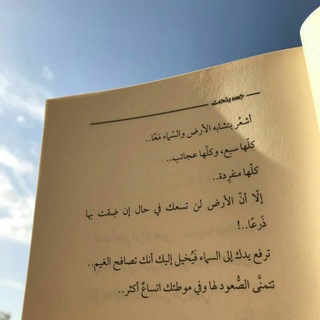 أشعُر بتشابه الأرض والسّماء مَعًا..
كلّها سبع، وكلّها عجائب..
كلّها منفرِدة..
إلّا أنّ الأرض لن تسعك في حال إن ضِقت بها
ذَرعًا..!
ترفع يدك إلى السماء فَيُخيل إليك أنك تصافح الغيم..
تتمنَّى الصُّعود لها وفي موطئك اتساعٌ أكثر..